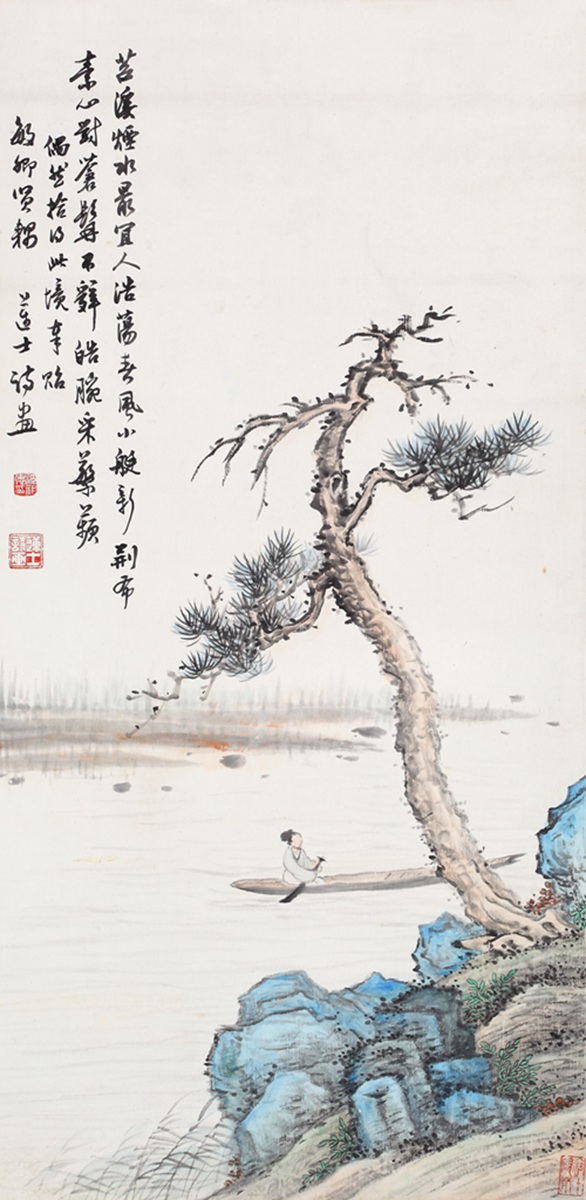 苕溪煙水最宜人浩蕩春風小艇新荊布
素心對蒼髯不辭皓腕采蘩蘋
偶然拾得此境奉貽
敏卿賢耦 蓮士詩畫